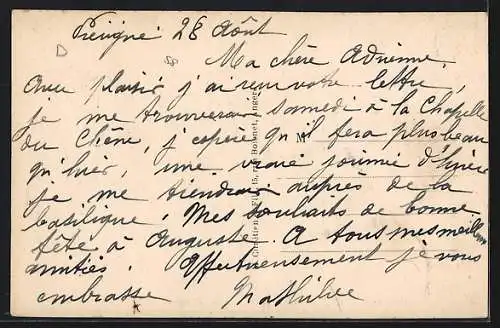 Précigné 28 Août
Ma chère Adrienne,
Avec plaisir j'ai reçu votre lettre,
je me trouverai samedi à la Chapelle
du Chêne, j'espère qu'il fera plus beau
qu'hier, une vraie journée d'hiver
je me tiendrai auprès de la
basilique. Mes souhaits de bonne
fête à Auguste. A tous mes meilleures
amitiés. Affectueusement je vous
embrasse Mathilde